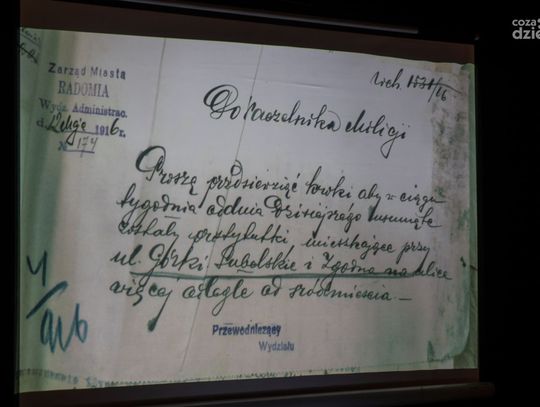 coza
dzie
Zarząd Miasta
RADOMIA
Wydz. Administrac.
d. 12 Maja 1916 r.
№ 174
Do Naczelnika Milicji
Proszę przedsięwziąć kroki aby w ciągu
tygodnia od dnia dzisiejszego usunięte
zostały prostytutki, mieszkające przy
ul. Górki Lubelskie i Zgodna na ulice
więcej odległe od śródmieścia —
Przewodniczący
Wydziału